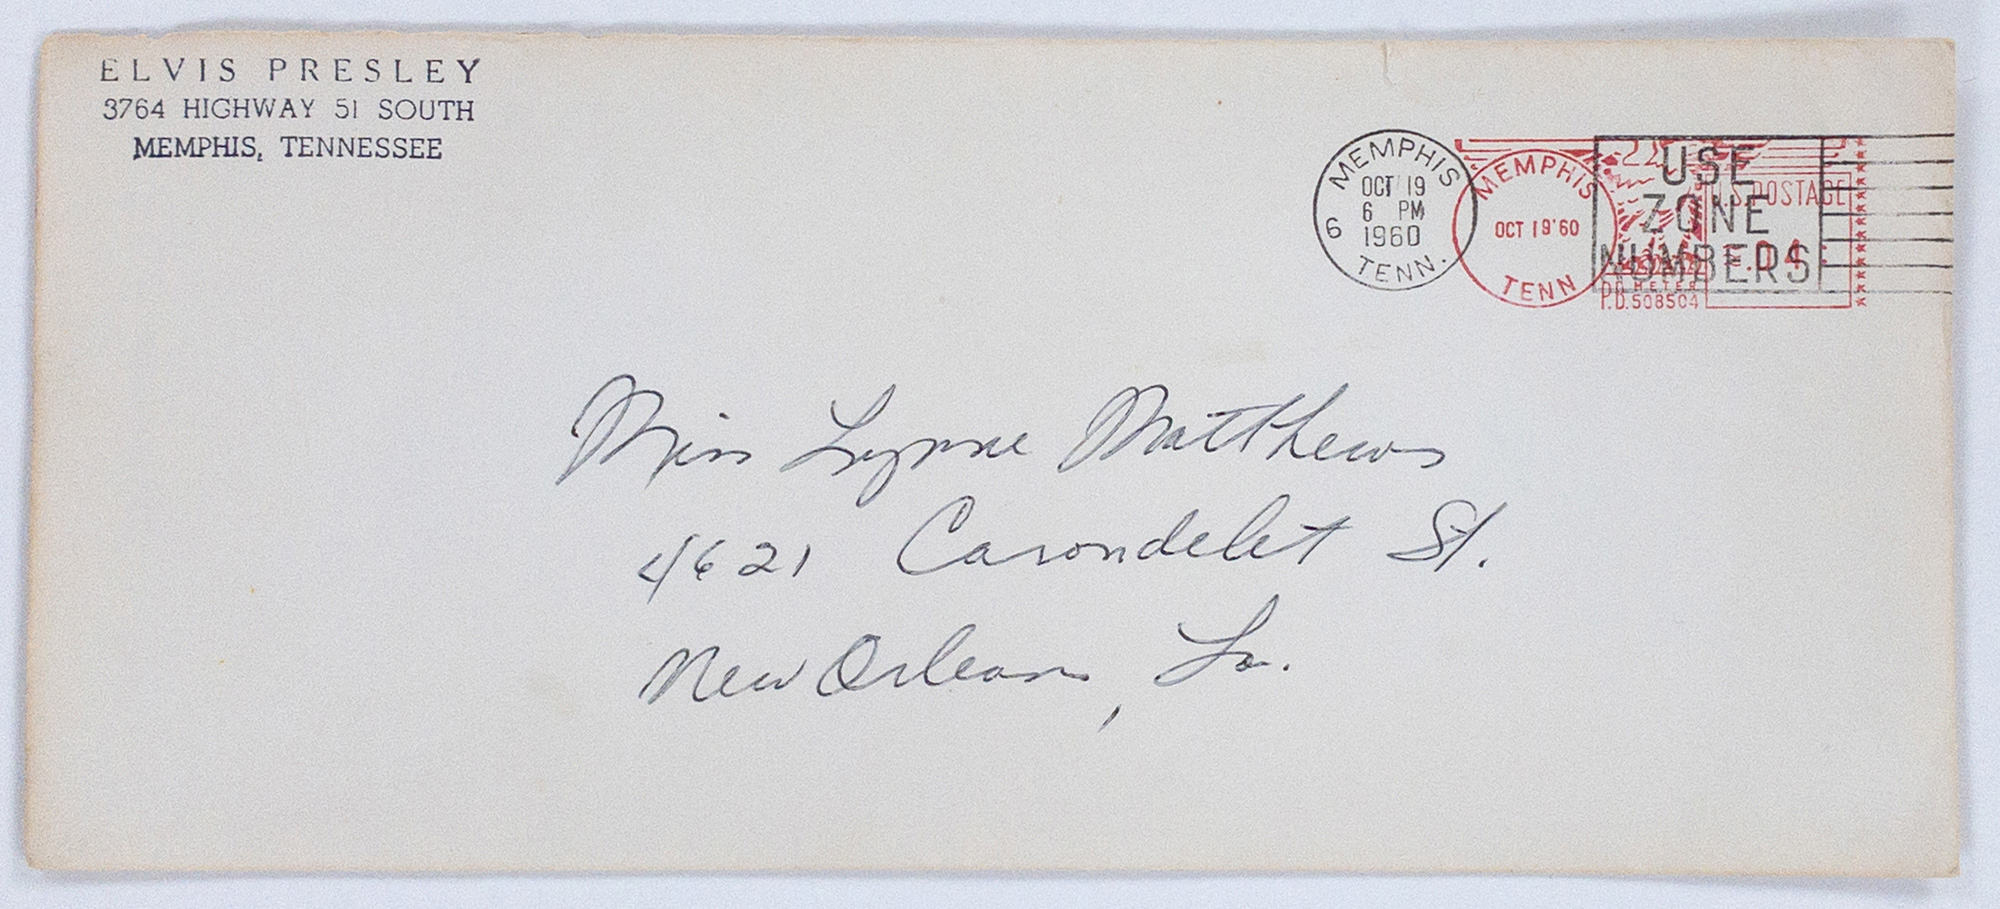 ELVIS PRESLEY
3764 HIGHWAY 51 SOUTH
MEMPHIS, TENNESSEE
MEMPHIS
OCT 19
6 PM
1960
6
TENN.
MEMPHIS
OCT 19 '60
TENN
USE
ZONE
NUMBERS
U.S. POSTAGE
.04
METER
508504
Miss Lynne Matthews
4621 Carondelet St.
New Orleans, La.